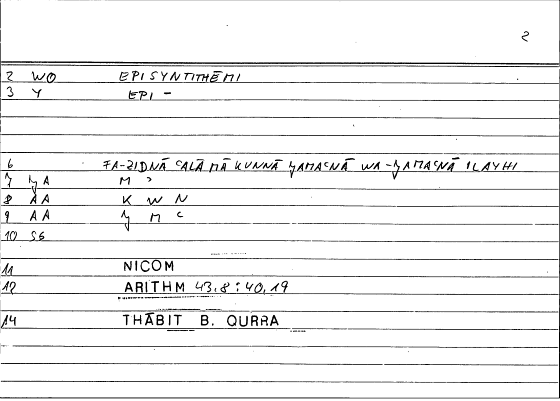 2
2 WO EPISYNTITHĒMI
3 Y EPI -
6 FA-ZIDNĀ ʿALĀ MĀ KUNNĀ ǦAMAʿNĀ WA-ǦAMAʿNĀ ILAYHI
7 ǦA M ʾ
8 AA K W N
9 AA Ǧ M ʿ
10 SG
11 NICOM
12 ARITHM 43.8 : 40,19
14 THĀBIT B. QURRA